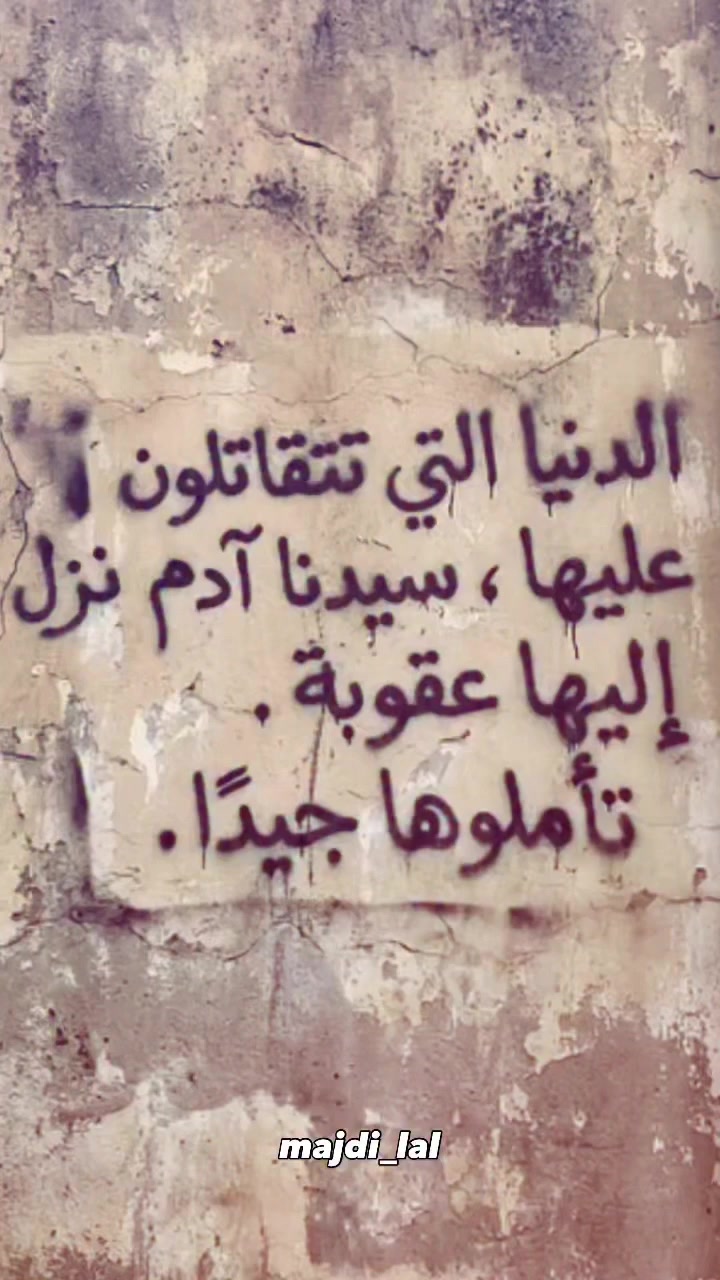 الدنيا التي تتقاتلون
عليها ، سيدنا آدم نزل
إليها عقوبة .
تأملوها جيدًا.
majdi_lal